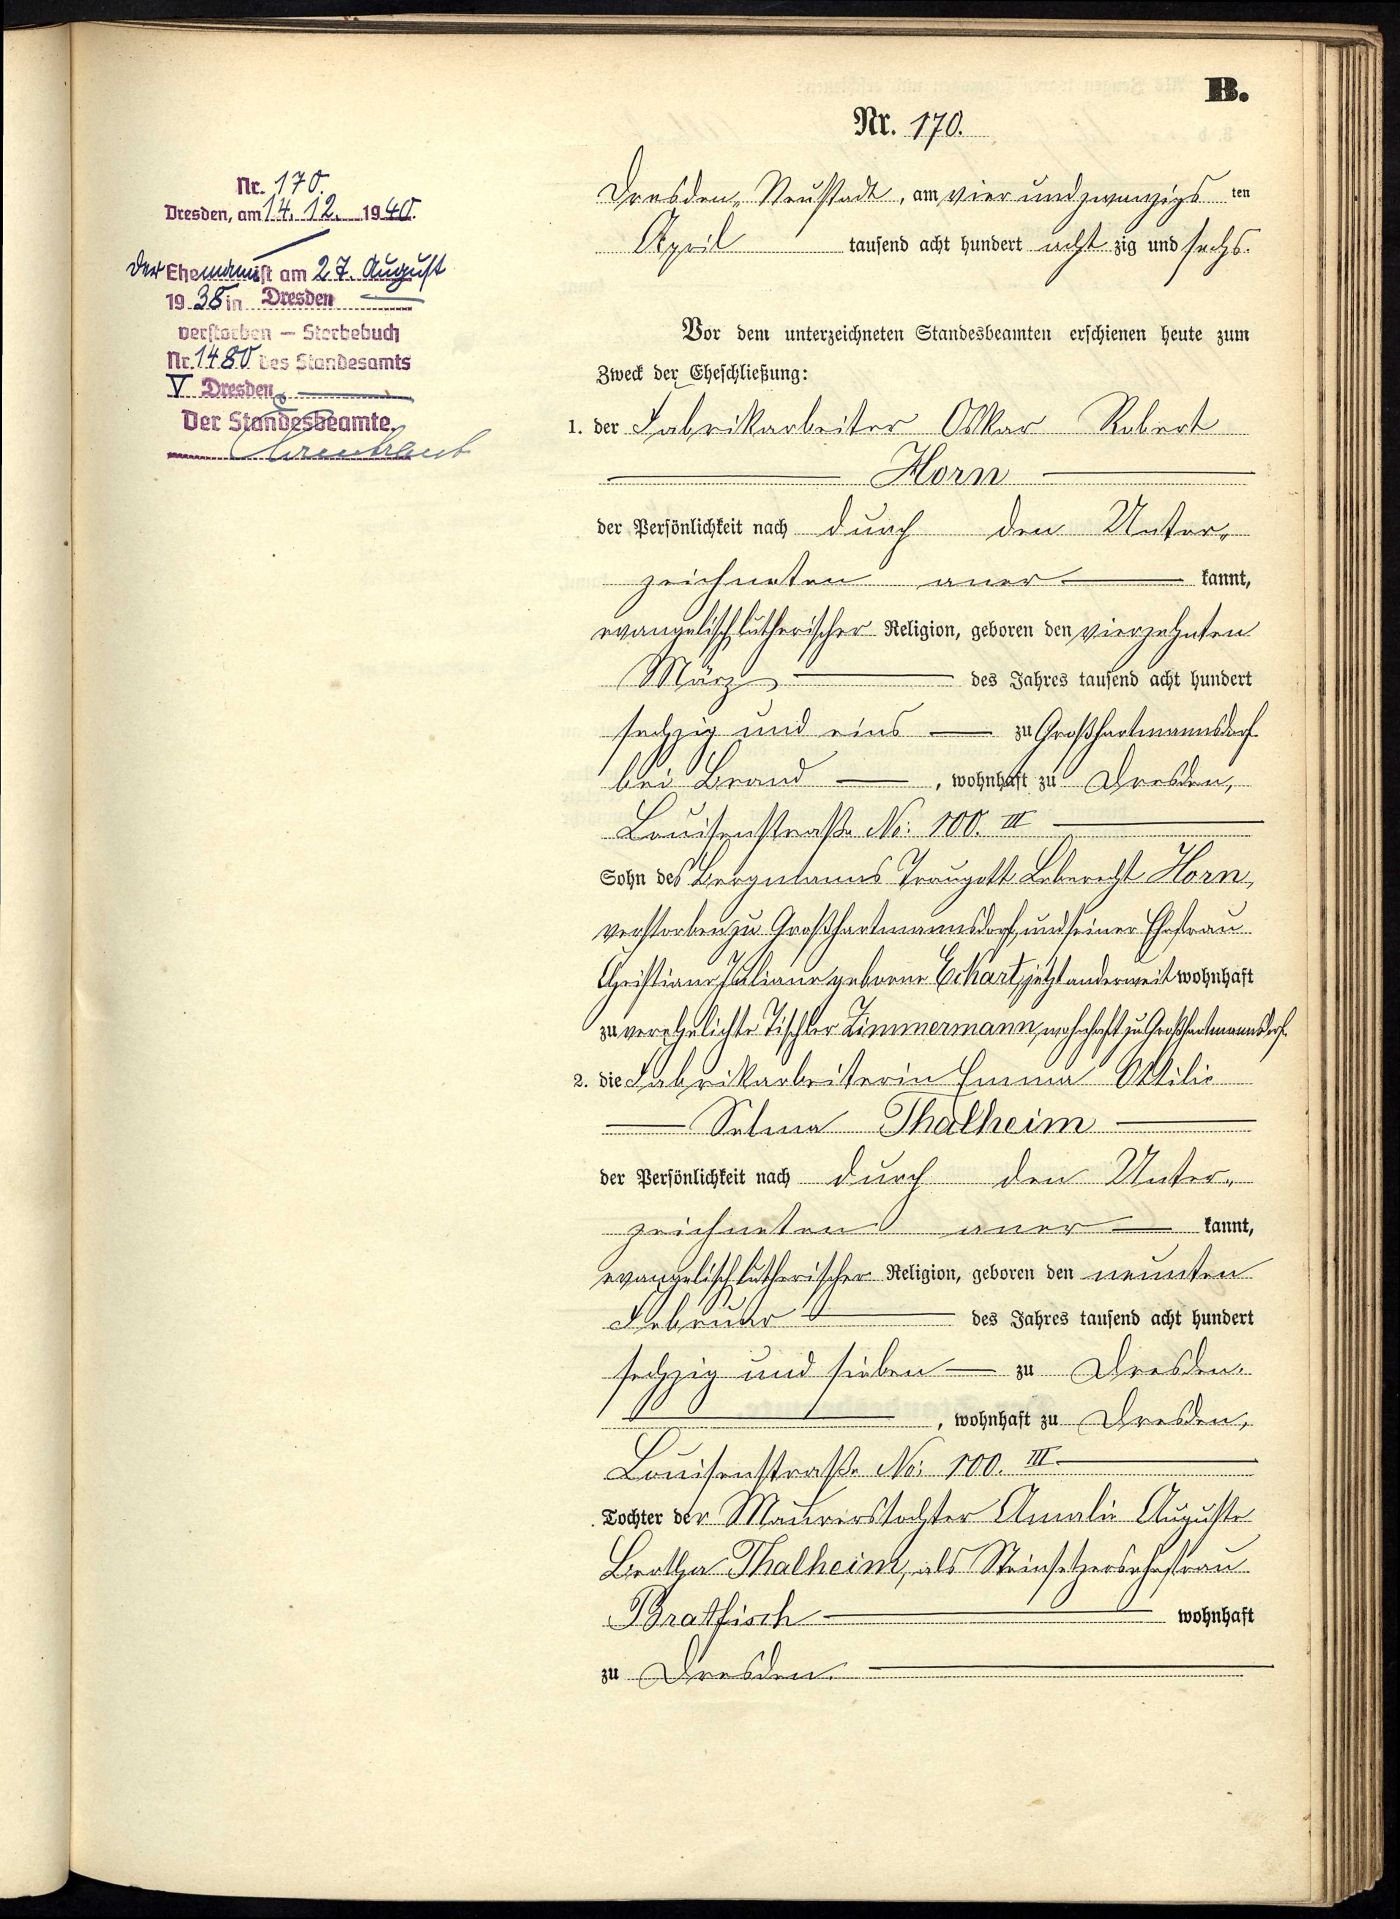 B.
Nr. 170.
Nr. 170.
Dresden, am 14. 12. 1940.
Der Ehemann ist am 27. August
1938 in Dresden
verstorben — Sterbebuch
Nr. 1480 des Standesamts
V Dresden
Der Standesbeamte.
Dresden-Neustadt, am vier und zwanzigs ten
April tausend acht hundert acht zig und sechs.
Vor dem unterzeichneten Standesbeamten erschienen heute zum
Zweck der Eheschließung:
1. der Fabrikarbeiter Oskar Robert
Horn
der Persönlichkeit nach durch den Unter-
zeichneten aner kannt,
evangelisch lutherischer Religion, geboren den vierzehnten
März des Jahres tausend acht hundert
sechzig und eins zu Großhartmannsdorf
bei Brand, wohnhaft zu Dresden,
Louisenstraße No: 100. III
Sohn des Bergmanns Traugott Leberecht Horn,
verstorben zu Großhartmannsdorf, und seiner Ehefrau
Christiane Juliane geborene Eckart, jetzt anderweit wohnhaft
zu verehelichte Tischler Zimmermann, wohnhaft zu Großhartmannsdorf.
2. die Fabrikarbeiterin Emma Ottilie
Selma Thalheim
der Persönlichkeit nach durch den Unter-
zeichneten aner kannt,
evangelisch lutherischer Religion, geboren den neunten
Februar des Jahres tausend acht hundert
sechzig und sieben zu Dresden.
, wohnhaft zu Dresden,
Louisenstraße No: 100. III
Tochter der Maurerstochter Amalie Auguste
Bertha Thalheim, als Steinsetzersehefrau
Bratfisch wohnhaft
zu Dresden.